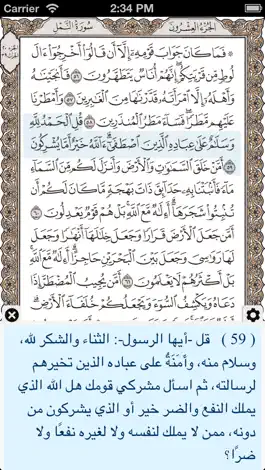 Carrier 2:34 PM
الجزء العشرون سورة النمل
۞ فَمَا كَانَ جَوَابَ قَوْمِهِۦٓ إِلَّآ أَن قَالُوٓا۟ أَخْرِجُوٓا۟ ءَالَ
لُوطٍ مِّن قَرْيَتِكُمْ ۖ إِنَّهُمْ أُنَاسٌ يَتَطَهَّرُونَ ٥٦ فَأَنجَيْنَٰهُ
وَأَهْلَهُۥٓ إِلَّا ٱمْرَأَتَهُۥ قَدَّرْنَٰهَا مِنَ ٱلْغَٰبِرِينَ ٥٧ وَأَمْطَرْنَا
عَلَيْهِم مَّطَرًا ۖ فَسَآءَ مَطَرُ ٱلْمُنذَرِينَ ٥٨ قُلِ ٱلْحَمْدُ لِلَّهِ
وَسَلَٰمٌ عَلَىٰ عِبَادِهِ ٱلَّذِينَ ٱصْطَفَىٰٓ ۗ ءَآللَّهُ خَيْرٌ أَمَّا يُشْرِكُونَ ٥٩
أَمَّنْ خَلَقَ ٱلسَّمَٰوَٰتِ وَٱلْأَرْضَ وَأَنزَلَ لَكُم مِّنَ ٱلسَّمَآءِ
مَآءً فَأَنۢبَتْنَا بِهِۦ حَدَآئِقَ ذَاتَ بَهْجَةٍ مَّا كَانَ لَكُمْ أَن
تُنۢبِتُوا۟ شَجَرَهَآ ۗ أَءِلَٰهٌ مَّعَ ٱللَّهِ ۚ بَلْ هُمْ قَوْمٌ يَعْدِلُونَ ٦٠
أَمَّن جَعَلَ ٱلْأَرْضَ قَرَارًا وَجَعَلَ خِلَٰلَهَآ أَنْهَٰرًا وَجَعَلَ
لَهَا رَوَٰسِىَ وَجَعَلَ بَيْنَ ٱلْبَحْرَيْنِ حَاجِزًا ۗ أَءِلَٰهٌ مَّعَ ٱللَّهِ ۚ
بَلْ أَكْثَرُهُمْ لَا يَعْلَمُونَ ٦١ أَمَّن يُجِيبُ ٱلْمُضْطَرَّ إِذَا
دَعَاهُ وَيَكْشِفُ ٱلسُّوٓءَ وَيَجْعَلُكُمْ خُلَفَآءَ ٱلْأَرْضِ ۗ
( 59 ) قل -أيها الرسول-: الثناء والشكر لله،
وسلام منه، وأَمَنَةٌ على عباده الذين تخيرهم
لرسالته، ثم اسأل مشركي قومك هل الله الذي
يملك النفع والضر خير أو الذي يشركون من
دونه، ممن لا يملك لنفسه ولا لغيره نفعًا ولا
ضرًا؟